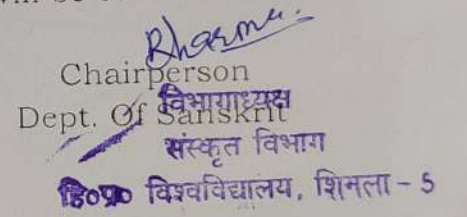 Sharma
Chairperson
Dept. Of Sanskrit
विभागाध्यक्ष
संस्कृत विभाग
हि०प्र० विश्वविद्यालय, शिमला - 5